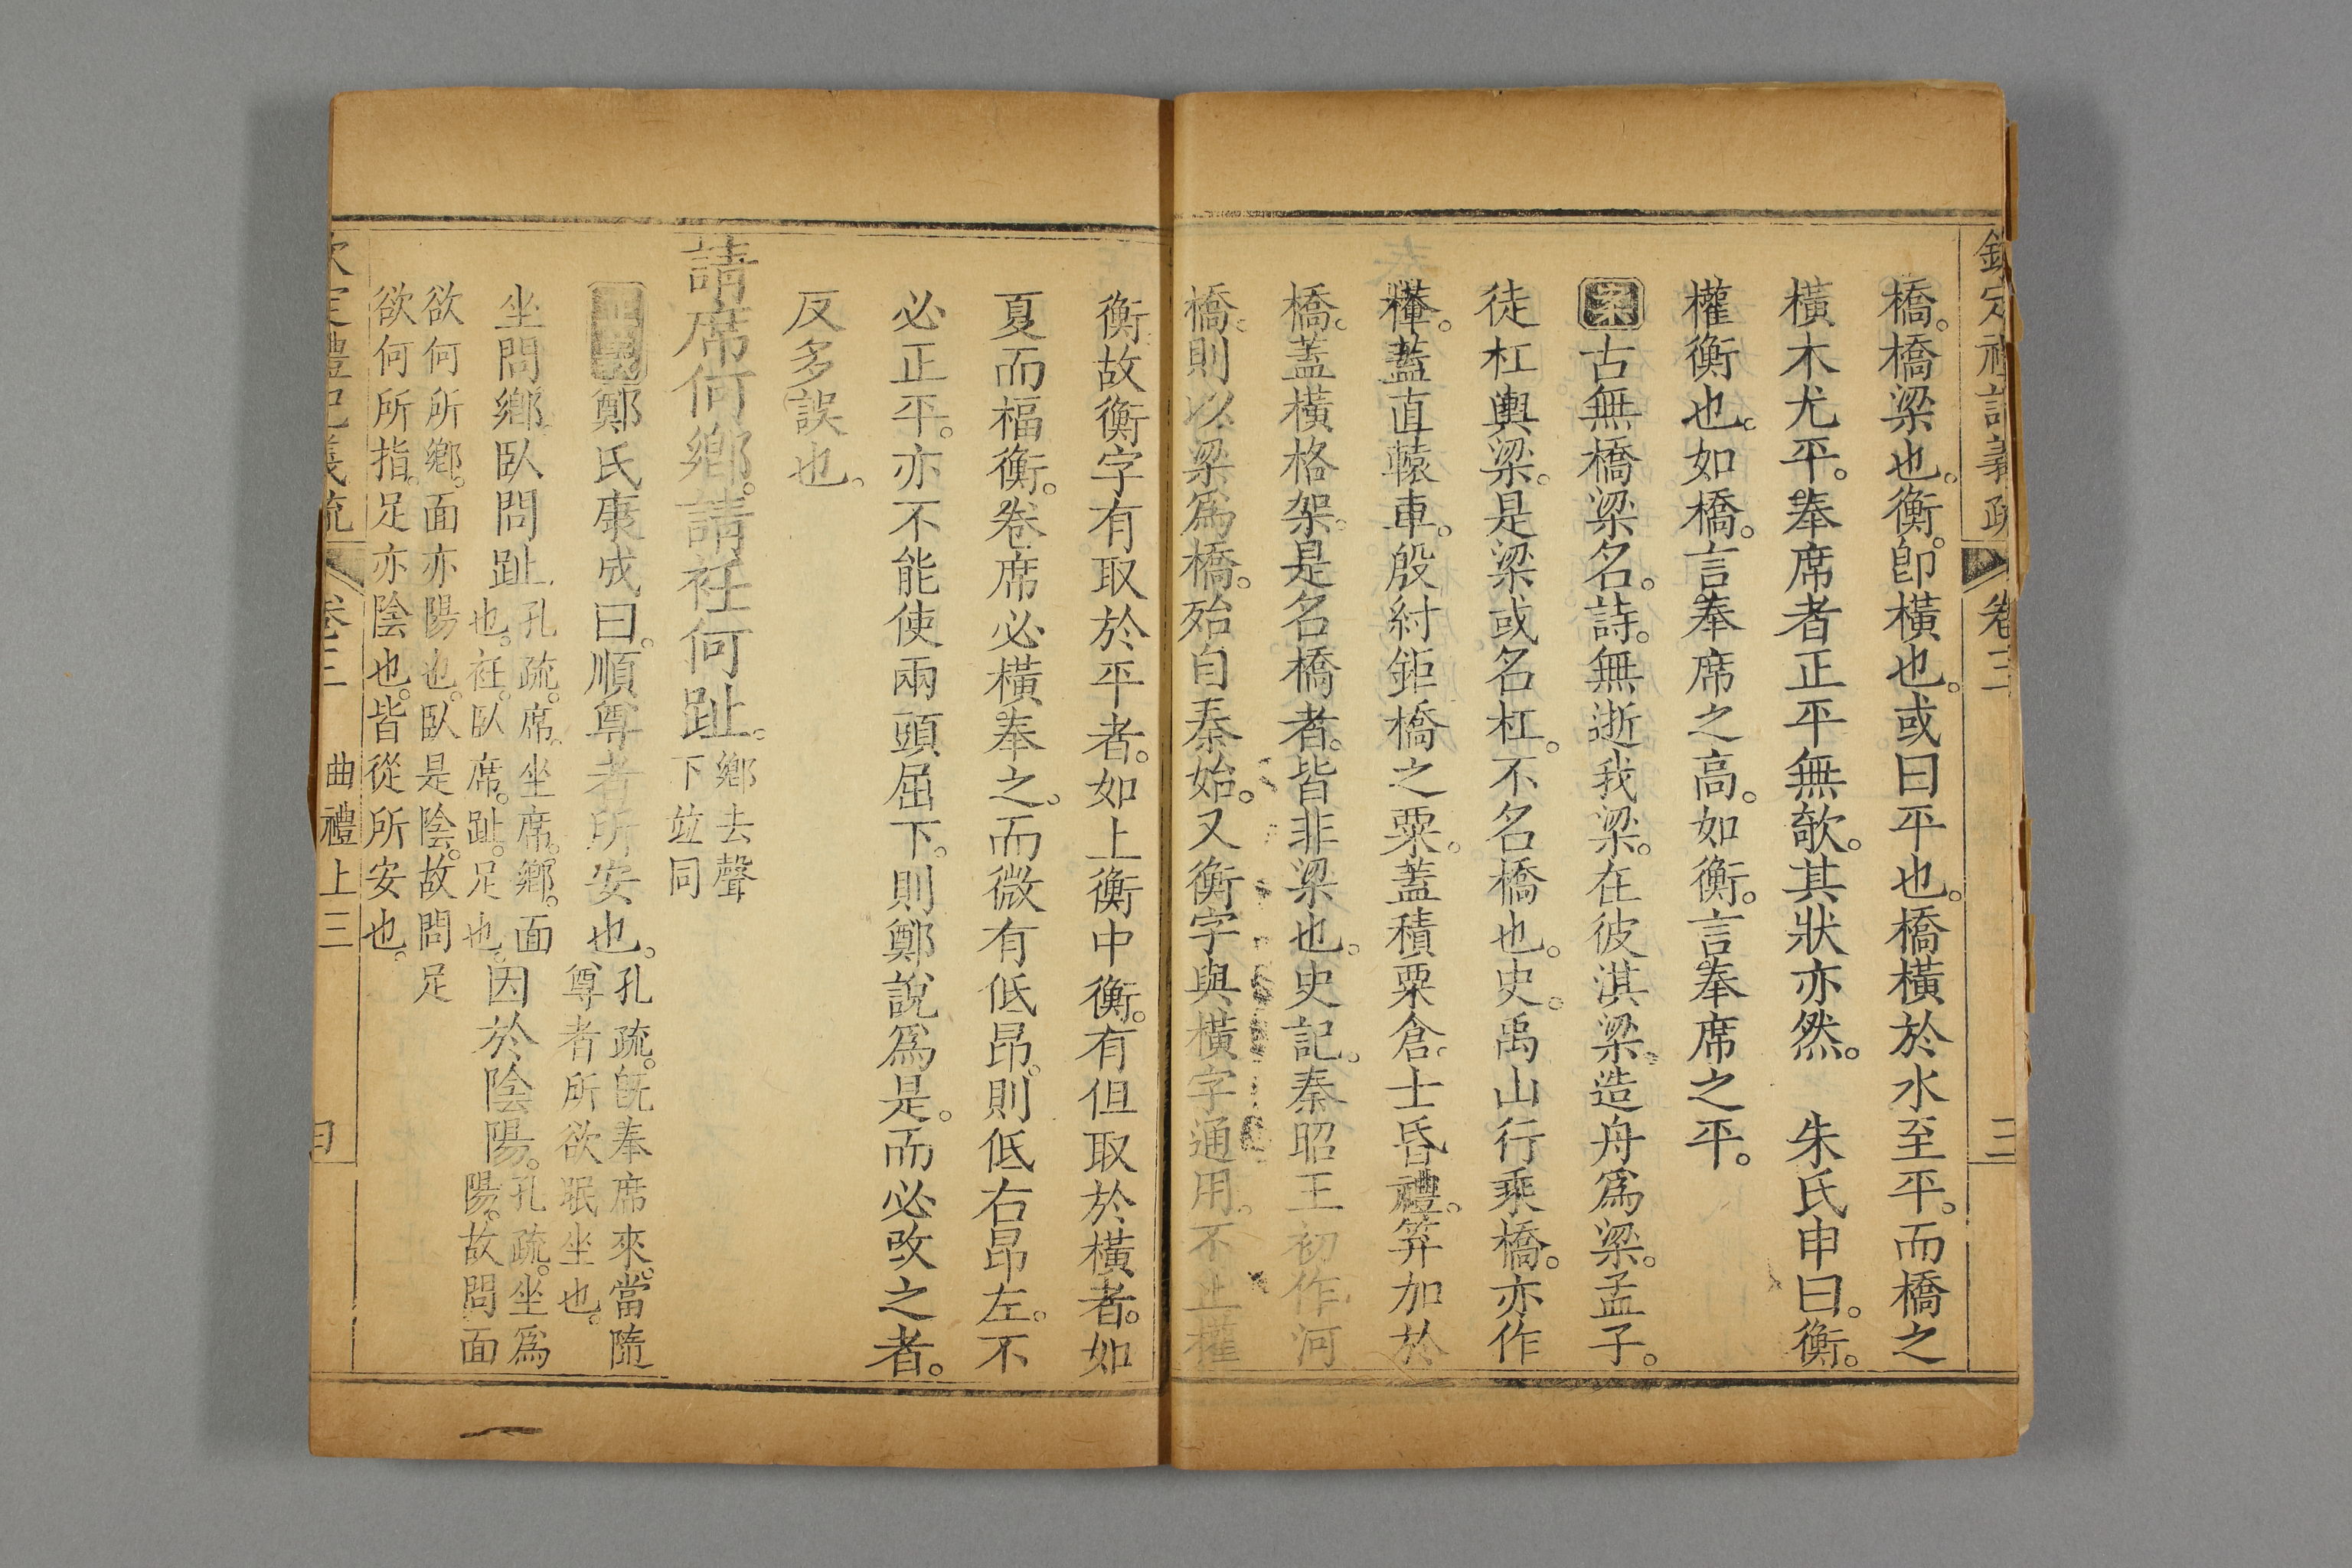 欽定禮記義疏 卷三 三
橋。橋梁也。衡。卽橫也。或曰平也。橋橫於水至平。而橋之
橫木尤平。奉席者正平無欹。其狀亦然。 朱氏申曰。衡。
權衡也。如橋。言奉席之高。如衡。言奉席之平。
案古無橋梁名。詩。無逝我梁。在彼淇梁。造舟爲梁。孟子。
徒杠輿梁。是梁或名杠。不名橋也。史。禹山行乘橋。亦作
蓋直轅車。殷紂鉅橋之粟。蓋積粟倉。士昏禮。笲加於
橋。蓋橫格架。是名橋者。皆非梁也。史記。秦昭王初作河
橋。則以梁爲橋。殆自秦始。又衡字與橫字通用。不止權
衡故衡字有取於平者。如上衡中衡。有但取於橫者。如
夏而楅衡。卷席必橫奉之。而微有低昂。則低右昂左。不
必正平。亦不能使兩頭屈下。則鄭說爲是。而必改之者。
反多誤也。
請席何鄉。請衽何趾。鄉去聲下竝同
正義鄭氏康成曰。順尊者所安也。孔疏。旣奉席來。當隨尊者所欲眠坐也。
坐問鄉臥問趾。孔疏。席。坐席。鄉。面也。衽。臥席。趾。足也。因於陰陽。孔疏。坐爲陽。故問面
欲何所鄉。面亦陽也。臥是陰。故問足
欲何所指。足亦陰也。皆從所安也。
欽定禮記義疏 卷三 曲禮上三